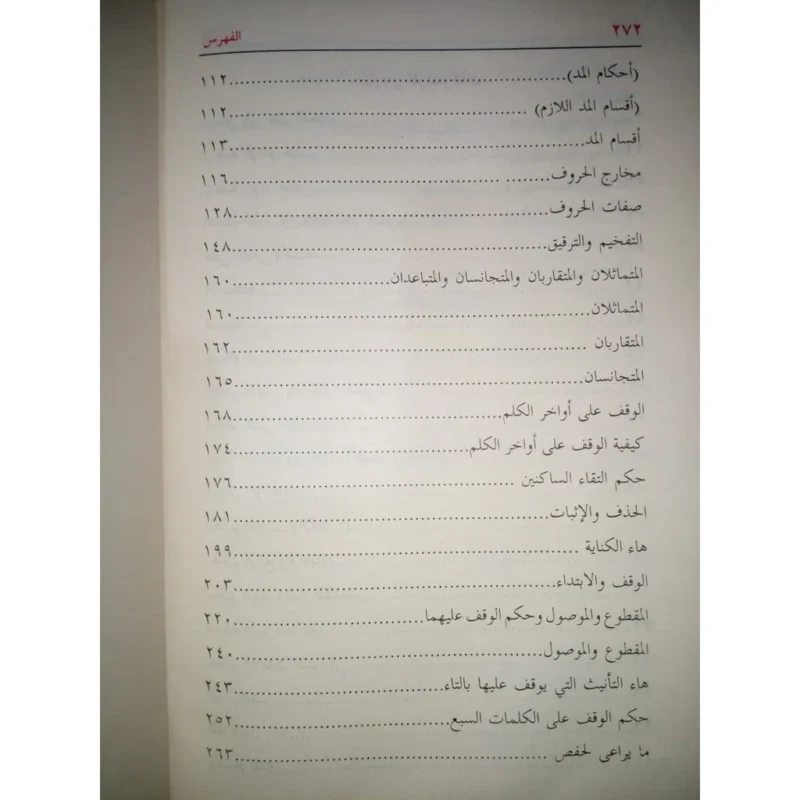 ٢٧٢ الفهرس
(أحكام المد)................................................١١٢
(أقسام المد اللازم) ................................................١١٢
أقسام المد................................................١١٣
مخارج الحروف........ ................................................١١٦
صفات الحروف................................................١٢٨
التفخيم والترقيق................................................١٤٨
المتماثلان والمتقاربان والمتجانسان والمتباعدان........................١٦٠
المتماثلان................................................١٦٠
المتقاربان ................................................١٦٢
المتجانسان................................................١٦٥
الوقف على أواخر الكلم................................................١٦٨
كيفية الوقف على أواخر الكلم........................................١٧٤
حكم التقاء الساكنين ................................................١٧٦
الحذف والإثبات................................................١٨١
هاء الكناية ................................................١٩٩
الوقف والابتداء................................................٢٠٣
المقطوع والموصول وحكم الوقف عليهما............................٢٢٠
المقطوع والموصول................................................٢٤٠
هاء التأنيث التي يوقف عليها بالتاء................................٢٤٣
حكم الوقف على الكلمات السبع................................٢٥٢
ما يراعى لحفص ................................................٢٦٣